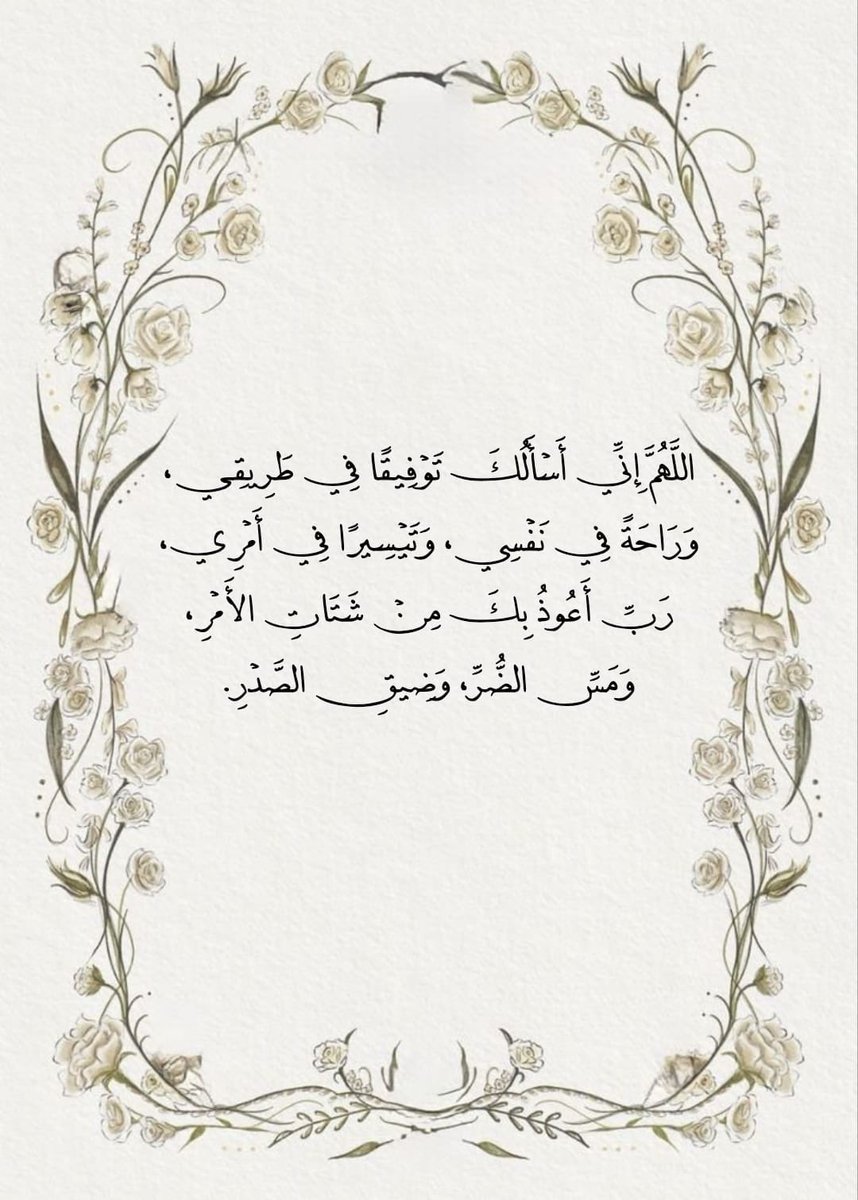 اللَّهُمَّ إِنِّي أَسْأَلُكَ تَوْفِيقًا فِي طَرِيقِي،
وَرَاحَةً فِي نَفْسِي، وَتَيْسِيرًا فِي أَمْرِي،
رَبِّ أَعُوذُ بِكَ مِنْ شَتَاتِ الأَمْرِ،
وَمَسِّ الضُّرِّ، وَضِيقِ الصَّدْرِ.